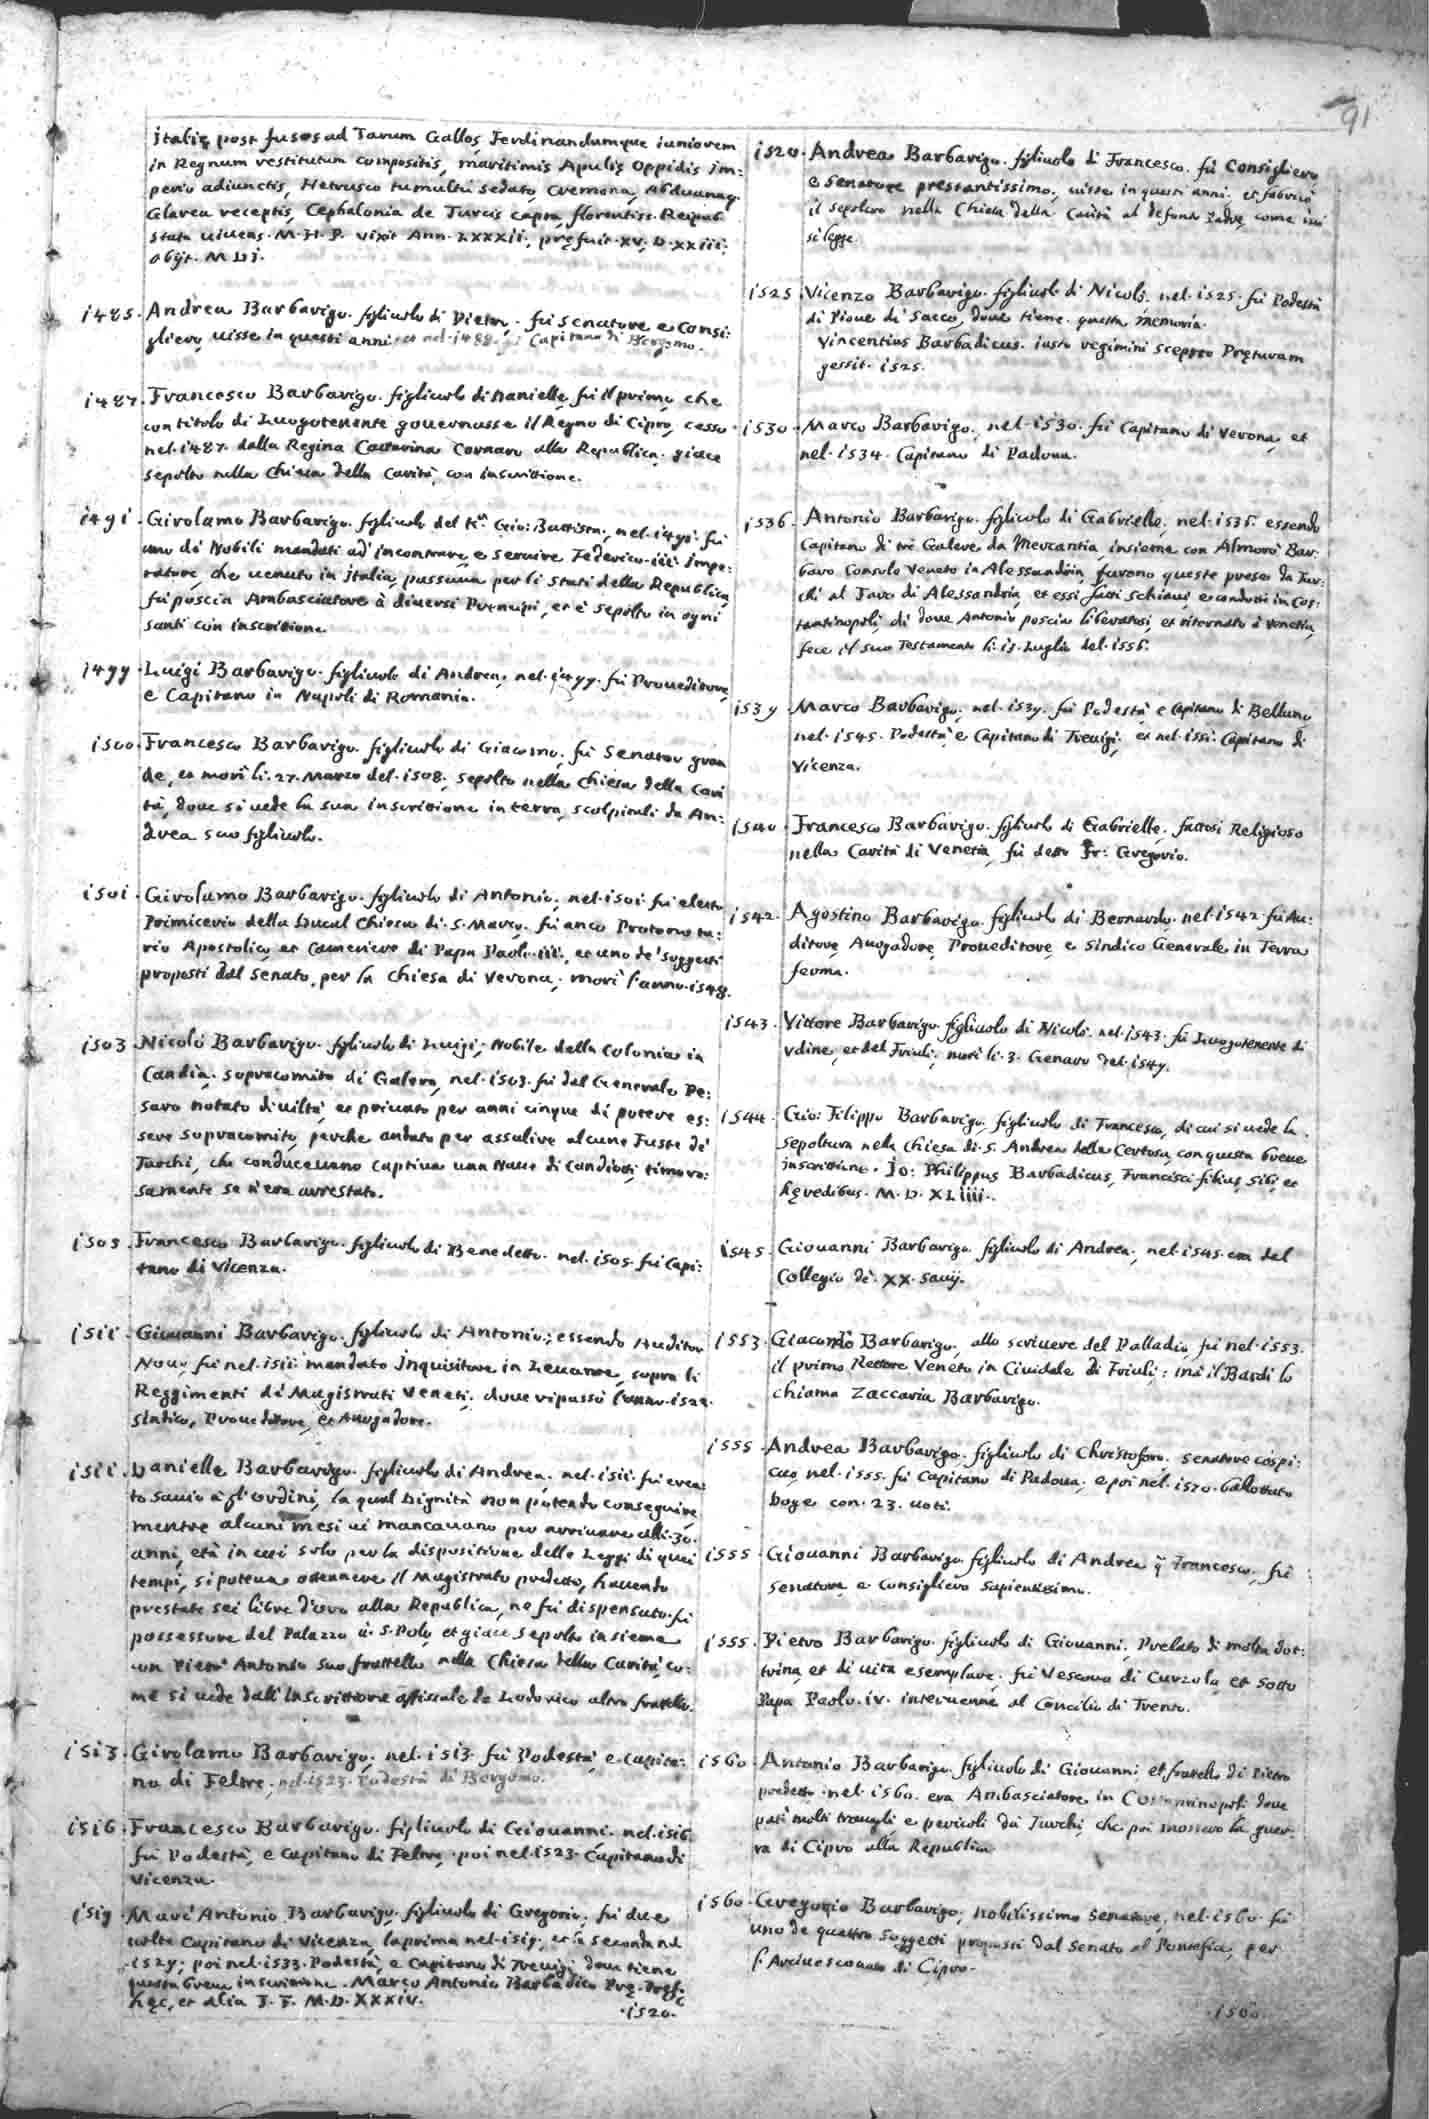 91
Italię post fusos ad Tarum Gallos, Ferdinandumque iuniorem
in Regnum restitutum compositis, maritimis Apulię oppidis im:
perio adiunctis, Hetrusco tumultu sedato, Cremona, Abduanaq.
Glarea receptis, Cephalonia de Turcis capta, florentiss. Reipub.
statu vivens. M. H. P. vixit Ann. LXXXII, pręfuit. XV. D. XXIII.
obijt. M D I.
1485. Andrea Barbarigo. figliuolo di Pietro. fù senatore e consi:
gliero, uisse in questi anni. et nel. 1488. fù Capitano di Bergomo.
1487. Francesco Barbarigo. figliuolo di Danielle, fù il primo, che
con titolo di Luogotenente gouernasse il Regno di Cipro, cesso
nel. 1487. dalla Regina Catterina Cornaro alla Republica. giace
sepolto nella Chiesa della Carità, con inscrittione.
1491. Girolamo Barbarigo. figliuolo del Kr. Gio: Battista, nel. 1491. fù
uno de Nobili mandati ad incontrare, e seruire Federico. iii. Impe:
ratore, che uenuto in Italia, passaua per li stati della Republica,
fù poscia Ambasciatore à diuersi Prencipi, et è sepolto in ogni
santi con inscrittione.
1499. Luigi Barbarigo. figliuolo di Andrea, nel. 1499. fù Proueditore,
e Capitano in Napoli di Romania.
1500. Francesco Barbarigo. figliuolo di Giacomo, fù Senator gran
de, et morì li. 27. Marzo del. 1508. sepolto nella Chiesa della Cari
tà, doue si uede la sua inscrittione in terra, scolpitali da An:
drea suo figliuolo.
1501. Girolamo Barbarigo. figliuolo di Antonio, nel. 1501. fù eletto
Primicerio della Ducal Chiesa di. S. Marco, fù anco Protonota:
rio Apostolico, et Cameriero di Papa Paolo. iii., et uno de' soggetti
proposti dal Senato, per la Chiesa di Verona, morì l'anno. 1548.
1503. Nicolò Barbarigo. figliuolo di Luigi, Nobile della Colonia in
Candia, sopracomito di Galera, nel. 1503. fù dal Generale Pe:
saro notato di uiltà, et priuato per anni cinque di potere es:
sere sopracomito, perche andato per assalire alcune Fuste de'
Turchi, che conduceuano captiua una Naue di Candioti, timoro:
samente se n'era arrestato.
1505. Francesco Barbarigo. figliuolo di Benedetto. nel. 1505. fù Capi:
tano di Vicenza.
1511. Giouanni Barbarigo. figliuolo di Antonio, essendo Auditor
Nouo, fù nel. 1511. mandato Inquisitore in Leuante, sopra li
Reggimenti de' Magistrati Veneti, doue ripassò l'anno. 1522.
Sindico, Proueditore, et Auogadore.
1511. Danielle Barbarigo. figliuolo di Andrea, nel. 1511. fù crea:
to Sauio à gl'ordini, la qual Dignità non potendo conseguire,
mentre alcuni mesi ui mancauano per arriuare alli. 30.
anni, età in cui solo per la dispositione delle Leggi di quei
tempi, si poteua ottenere il Magistrato predetto, hauendo
prestate sei libre d'oro alla Republica, ne fù dispensato. fù
possessore del Palazzo à. S. Polo, et giace sepolto insieme
con Pietr' Antonio suo fratello nella Chiesa della Carità, co:
me si uede dall'inscrittione da Lodovico altro fratello.
1513. Girolamo Barbarigo, nel. 1513. fù Podestà, e Capita:
no di Feltre, nel. 1523. Podestà di Bergomo.
1516. Francesco Barbarigo. figliuolo di Giouanni. nel. 1516.
fù Podestà, e Capitano di Feltre, poi nel. 1523. Capitano di
Vicenza.
1519. Marc' Antonio Barbarigo. figliuolo di Gregorio, fù due
uolte Capitano di Vicenza, la prima nel. 1519, et la seconda nel
.1529; poi nel. 1533. Podestà, e Capitano di Treuigi doue tiene
questa breue inscrittione. Marco Antonio Barbadico Prę.
hęc, et alia F. F. M. D. XXXIV.
.1520.
1520. Andrea Barbarigo. figliuolo di Francesco. fù Consigliero
e Senatore prestantissimo, uisse in questi anni. et fabricò
il sepolcro nella Chiesa della Carità al defonto Padre, come iui
si legge.
1525. Vicenzo Barbarigo. figliuolo di Nicolò. nel. 1525. fù Podestà
di Pioue di Sacco, doue tiene questa memoria.
Vincentius Barbadicus. iusto regimini sceptro Pręturam
gessit. 1525.
1530. Marco Barbarigo, nel. 1530. fù Capitano di Verona, et
nel. 1534. Capitano di Padoua.
1536. Antonio Barbarigo. figliuolo di Gabrielle, nel. 1536. essendo
Capitano di trè Galere da Mercantia, insieme con Almorò Bar:
baro Consolo Veneto in Alessandria, furono queste prese da Tur:
chi al Faro di Alessandria, et essi fatti schiaui, e condotti in Cos:
tantinopoli, di doue Antonio poscia liberatosi, et ritornato à Venetia,
fece il suo Testamento li. 15. Luglio del. 1556.
1539. Marco Barbarigo, nel. 1539. fù Podestà, e Capitano di Belluno,
nel. 1545. Podestà, e Capitano di Treuigi, et nel. 1551. Capitano di
Vicenza.
1540. Francesco Barbarigo. figliuolo di Gabrielle, fattosi Religioso
nella Carità di Venetia, fù detto Fr: Gregorio.
1542. Agostino Barbarigo. figliuolo di Bernardo. nel. 1542. fù Au:
ditore, Auogadore, Proueditore, e Sindico Generale in Terra
ferma.
1543. Vittore Barbarigo. figliuolo di Nicolò. nel. 1543. fù Luogotenente di
Vdine, et del Friuli, morì li. 3. Genaro del. 1549.
1544. Gio: Filippo Barbarigo, figliuolo di Francesco, di cui si uede la
sepoltura nella Chiesa di. S. Andrea della Certosa, con questa breue
inscrittione. Jo: Philippus Barbadicus, Francisci filius, sibi, et
hęredibus. M. D. XLIIII.
1545. Giouanni Barbarigo. figliuolo di Andrea, nel. 1545. era del
Collegio de'. XX. Sauij.
1553. Giacomo Barbarigo, allo scriuere del Palladio, fù nel. 1553.
il primo Rettore Veneto in Ciuidale di Friuli; mà il Bardi lo
chiama Zaccaria Barbarigo.
1555. Andrea Barbarigo. figliuolo di Christoforo, senatore cospi:
cuo, nel. 1555. fù Capitano di Padoua, e poi nel. 1570. ballottato
Doge con. 23. uoti.
1555. Giouanni Barbarigo. figliuolo di Andrea q. Francesco, fù
senatore, e Consigliero sapientissimo.
1555. Pietro Barbarigo. figliuolo di Giouanni, Prelato di molta dot:
trina, et di uita esemplare. fù Vescouo di Curzola, et sotto
Papa Paolo. iv. interuenne al Concilio di Trento.
1560. Antonio Barbarigo. figliuolo di Giouanni, et fratello di Pietro
predetto. nel. 1560. era Ambasciatore in Costantinopoli doue
patì molti trauagli, e pericoli da Turchi, che poi mossero la guer:
ra di Cipro alla Republica.
1560. Gregorio Barbarigo, nobilissimo senatore, nel. 1560. fù
uno de quattro soggetti proposti dal Senato al Pontefice, per
l'Arciuescouato di Cipro.
.1560.